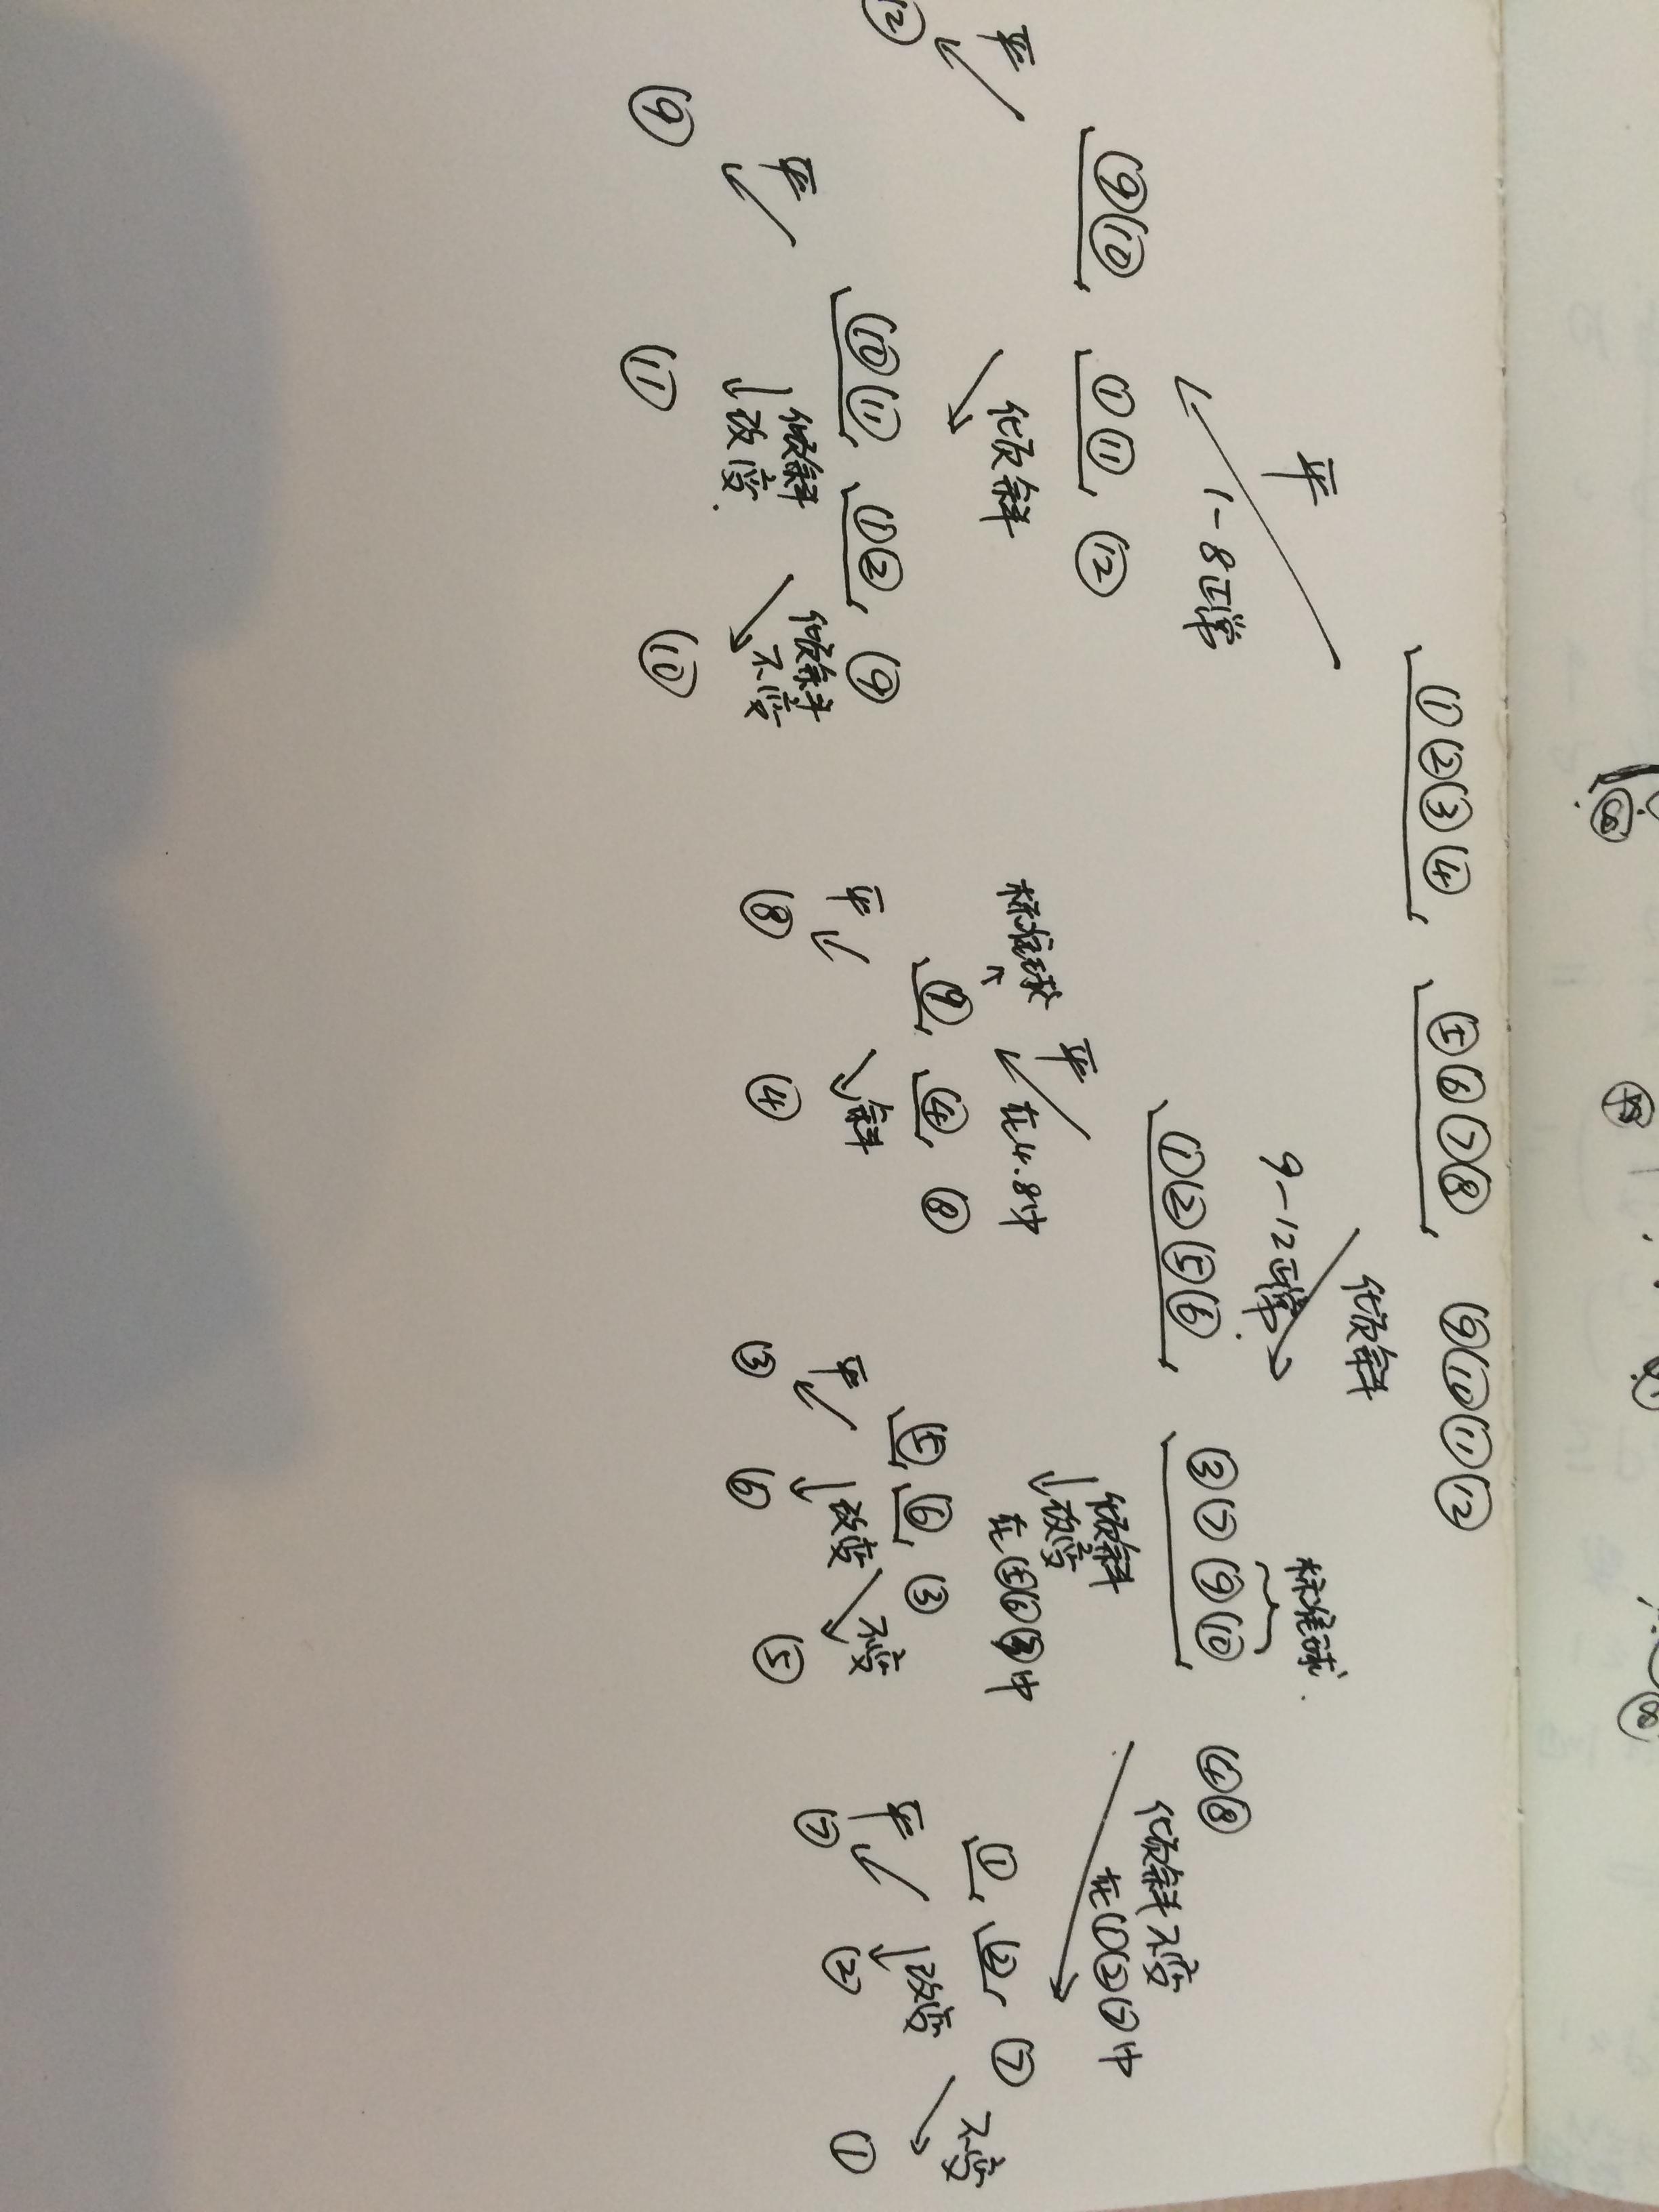 ①②③④ ⑤⑥⑦⑧ ⑨⑩⑪⑫
平 倾斜
1-8正常 9-12正常
⑨⑩ ①⑪ ⑫
平 倾斜
⑫
⑩⑪ ①② ⑨
平 倾斜改变 倾斜不变
⑨ ⑪ ⑩
标准球
①②⑤⑥ ③⑦⑨⑩ ④⑧
平 倾斜改变 倾斜不变
在4.8中 在⑤⑥③中 在①②⑦中
标准球
⑨ ④ ⑧
平 斜
⑧ ④
⑤ ⑥ ③
平 改变 不变
③ ⑥ ⑤
① ② ⑦
平 改变 不变
⑦ ② ①